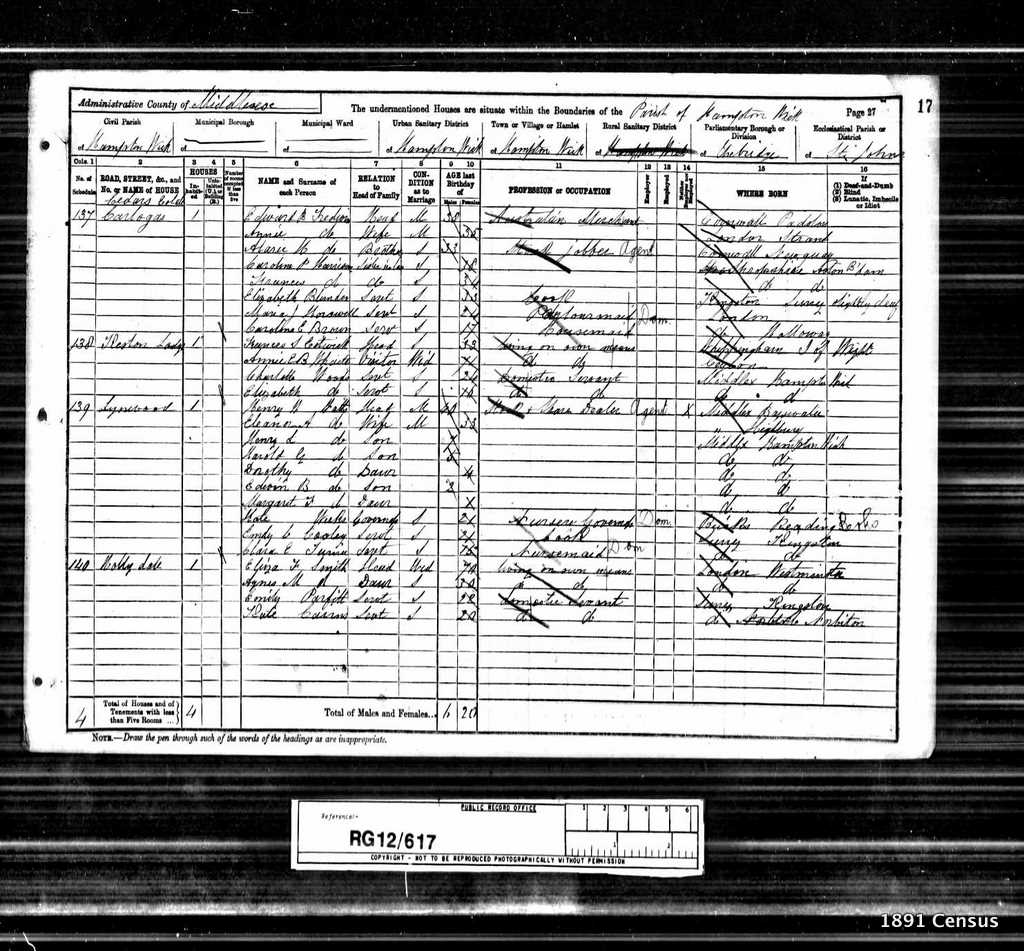 17
Administrative County of Middlesex
The undermentioned Houses are situate within the Boundaries of the Parish of Hampton Wick
Page 27
Civil Parish
Municipal Borough
Municipal Ward
Urban Sanitary District
Town or Village or Hamlet
Rural Sanitary District
Parliamentary Borough or Division
Ecclesiastical Parish or District
of Hampton Wick
of
of
of Hampton Wick
of Hampton Wick
of
of Uxbridge
of St. Johns
Cols. 1 2 3 4 5 6 7 8 9 10 11 12 13 14 15 16
No. of Schedule
ROAD, STREET, &c., and No. or NAME of HOUSE
HOUSES
Inhabited
Uninhabited (U.), or Building (B.)
Number of rooms occupied if less than five
NAME and Surname of each Person
RELATION to Head of Family
CONDITION as to Marriage
AGE last Birthday of
Males Females
PROFESSION or OCCUPATION
Employer
Employed
Neither Employer nor Employed
WHERE BORN
If
(1) Deaf-and-Dumb
(2) Blind
(3) Lunatic, Imbecile or Idiot
Cedars
137 1 Edward B Head M 38 Australian Merchant Cornwall Padstow
Annie do Wife M 35 London Strand
H do Brother S 33 Stock Jobber Agent Cornwall Newquay
Caroline Harrison Sister in law S 38 Aston B'ham
Frances do do S 34 do do
Elizabeth Servt S 33 Cook Kingston Surrey
Maria J Servt S Parlourmaid Dom. London
Caroline E Brown Serv S 17 Housemaid do Holloway
138 Lodge 1 Frances S Head S Living on own means Whippingham I of Wight
Annie E B Visitor Wid do do
Charlotte Woods Servt S 24 Domestic Servant Middlex Hampton Wick
Elizabeth do Servt S do do do d
139 Lynwood 1 Henry Head M Share Dealer Agent X Middlex Bayswater
Eleanor A do Wife M 33 " Highbury
Henry L do Son Middlx Hampton Wick
Harold G do Son do do
Dorothy do Daur 4 do do
Edwin B do Son 2 do do
Margaret F d Daur do do
Kate Weeks Governess S 21 Nursery Governess Dom. Berks Reading
Emily C Servt S Cook Surrey Kingston
Clara E Servt S 15 Nursemaid Dom do do
140 Holly dale 1 Eliza F Smith Head Wid 70 Living on own means London Westminster
Agnes M d Daur S 30 do do do
Emily Parfitt Servt S 22 Domestic Servant Surrey Kingston
Kate Cairns Servt S 20 do do do Norbiton
4
Total of Houses and of Tenements with less than Five Rooms ...
4
Total of Males and Females...
6 20
NOTE.—Draw the pen through such of the words of the headings as are inappropriate.
PUBLIC RECORD OFFICE
1 2 3 4 5 6
Reference:-
RG12/617
1 2
COPYRIGHT - NOT TO BE REPRODUCED PHOTOGRAPHICALLY WITHOUT PERMISSION
1891 Census